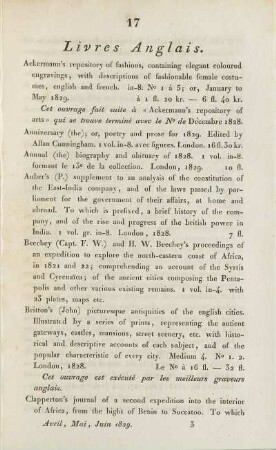 17
Livres Anglais.
Ackermann's repository of fashions, containing elegant coloured
engravings, with descriptions of fashionable female costu-
mes, english and french. in-8. Nº 1 à 5; or, January to
May 1829. à 1 fl. 20 kr. — 6 fl. 40 kr.
Cet ouvrage fait suite à «Ackermann's repository of
arts» qui se trouve terminé avec le Nº de Décembre 1828.
Anniversary (the); or, poetry and prose for 1829. Edited by
Allan Cunningham. 1 vol. in-8. avec figures. London. 16 fl. 30 kr.
Annual (the) biography and obituary of 1828. 1 vol. in-8.
formant le 13e de la collection. London, 1829. 10 fl.
Auber's (P.) supplement to an analysis of the constitution of
the East-India company, and of the laws passed by par-
liament for the government of their affairs, at home and
abroad. To which is prefixed, a brief history of the com-
pany, and of the rise and progress of the british power in
India. 1 vol. gr. in-8. London, 1828. 7 fl.
Beechey (Capt. F. W.) and H. W. Beechey's proceedings of
an expedition to explore the north-eastern coast of Africa,
in 1821 and 22; comprehending an account of the Syrtis
and Cyrenaica; of the ancient cities composing the Penta-
polis and other various existing remains. 1 vol. in-4. with
23 plates, maps etc.
Britton's (John) picturesque antiquities of the english cities.
Illustrated by a series of prints, representing the ancient
gateways, castles, mansions, street scenery, etc. with histo-
rical and descriptive accounts of each subject, and of the
popular characteristic of every city. Medium 4. Nº 1. 2.
London, 1828. Le Nº à 16 fl. — 32 fl.
Cet ouvrage est exécuté par les meilleurs graveurs
anglais.
Clapperton's journal of a second expedition into the interior
of Africa, from the bight of Benin to Soccatoo. To which
Avril, Mai, Juin 1829. 3